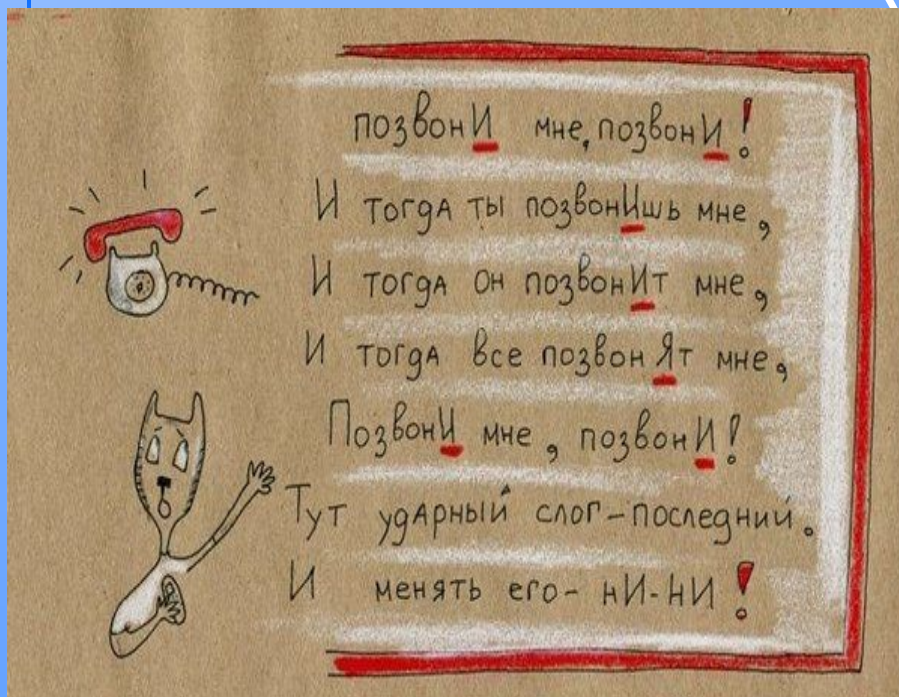 позвонИ мне, позвонИ!
И тогда ты позвонИшь мне,
И тогда он позвонИт мне,
И тогда все позвонЯт мне,
ПозвонИ мне, позвонИ!
Тут ударный слог-последний.
И менять его- нИ-нИ!